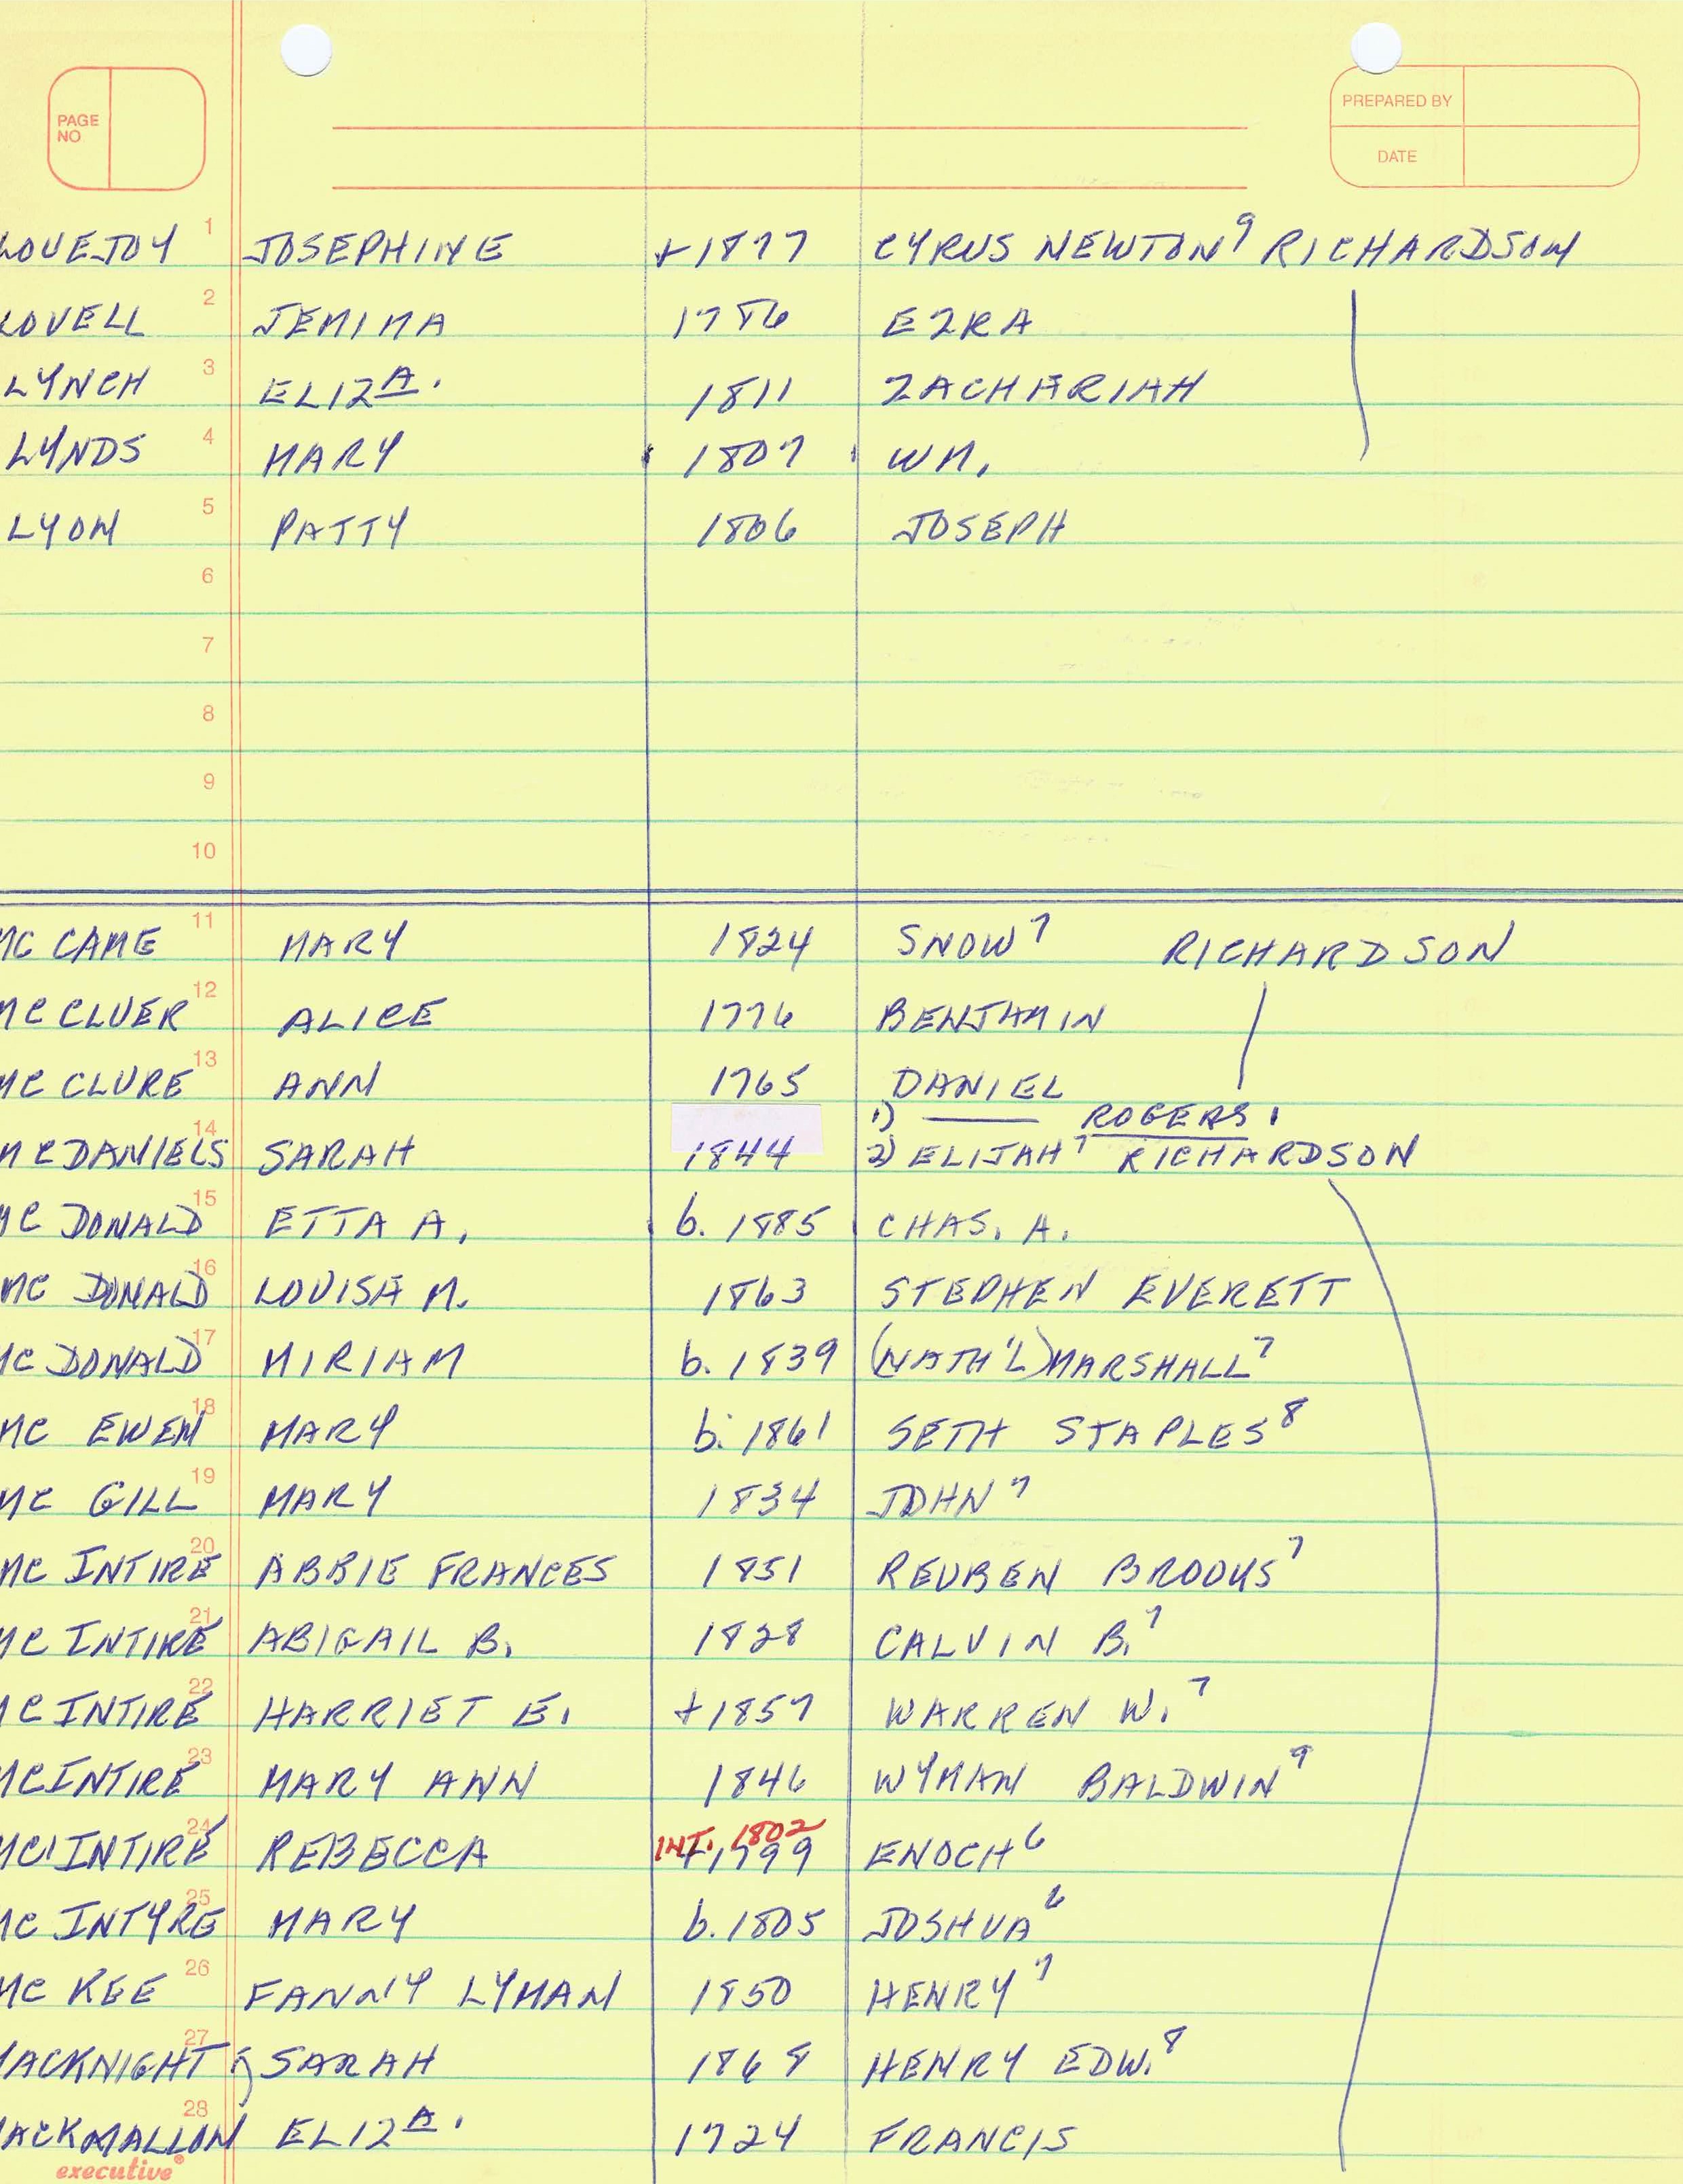 PAGE NO
PREPARED BY
DATE
1 LOVEJOY JOSEPHINE +1877 CYRUS NEWTON⁹ RICHARDSON
2 LOVELL JEMIMA 1786 EZRA
3 LYNCH ELIZᴬ. 1811 ZACHARIAH
4 LYNDS MARY 1807 WM.
5 LYON PATTY 1806 JOSEPH
6
7
8
9
10
11 MC CAME MARY 1824 SNOW⁷ RICHARDSON
12 MC CLUER ALICE 1776 BENJAMIN
13 MC CLURE ANN 1765 DANIEL
1) —— ROGERS.
14 MC DANIELS SARAH 1844 2) ELIJAH⁷ RICHARDSON
15 MC DONALD ETTA A. b. 1885 CHAS. A.
16 MC DONALD LOUISA M. 1863 STEPHEN EVERETT
17 MC DONALD MIRIAM b. 1839 (NATH'L) MARSHALL⁷
18 MC EWEN MARY b. 1861 SETH STAPLES⁸
19 MC GILL MARY 1834 JOHN⁷
20 MC INTIRE ABBIE FRANCES 1851 REUBEN BROOKS⁷
21 MC INTIRE ABIGAIL B. 1828 CALVIN B.⁷
22 MC INTIRE HARRIET E. +1857 WARREN W.⁷
23 MCINTIRE MARY ANN 1846 WYMAN BALDWIN⁹
INT. 1802
24 MC INTIRE REBECCA +1799 ENOCH⁶
25 MC INTYRE MARY b. 1805 JOSHUA⁶
26 MC KEE FANNY LYMAN 1850 HENRY⁷
27 MACKNIGHT SARAH 1868 HENRY EDW.⁸
28 MACKMALLON ELIZᴬ. 1724 FRANCIS
executive®